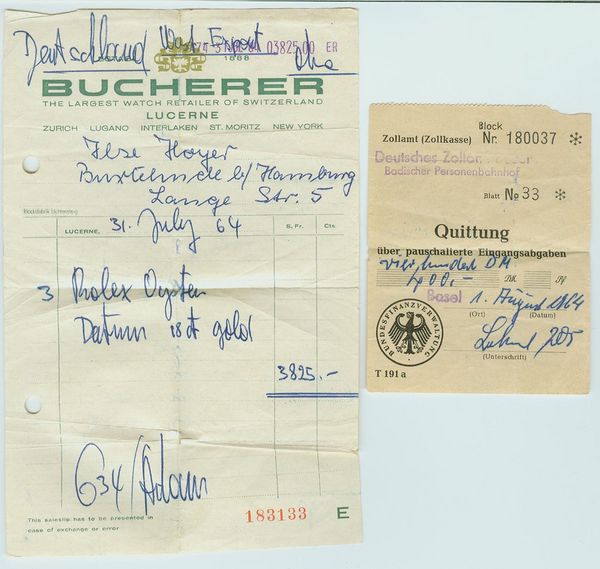 Deutschland West Export
03825.00 ER
1888
BUCHERER
THE LARGEST WATCH RETAILER OF SWITZERLAND
LUCERNE
ZURICH LUGANO INTERLAKEN ST. MORITZ NEW YORK
Ilse Hoyer
Buxtehude b/ Hamburg
Lange Str. 5
LUCERNE, 31. July 64 S. Fr. Cts.
3 Rolex Oyster
Datum 18 ct gold
3825.-
634/Adam
This saleslip has to be presented in
case of exchange or error
183133 E
Block
Zollamt (Zollkasse) Nr. 180037 *
Deutsches Zollamt Basel
Badischer Personenbahnhof
Blatt No 33 *
Quittung
über pauschalierte Eingangsabgaben
vierhundert DM
400.- DM Pf
Basel 1. August 1964
(Ort) (Datum)
BUNDESFINANZVERWALTUNG
(Unterschrift)
T 191 a